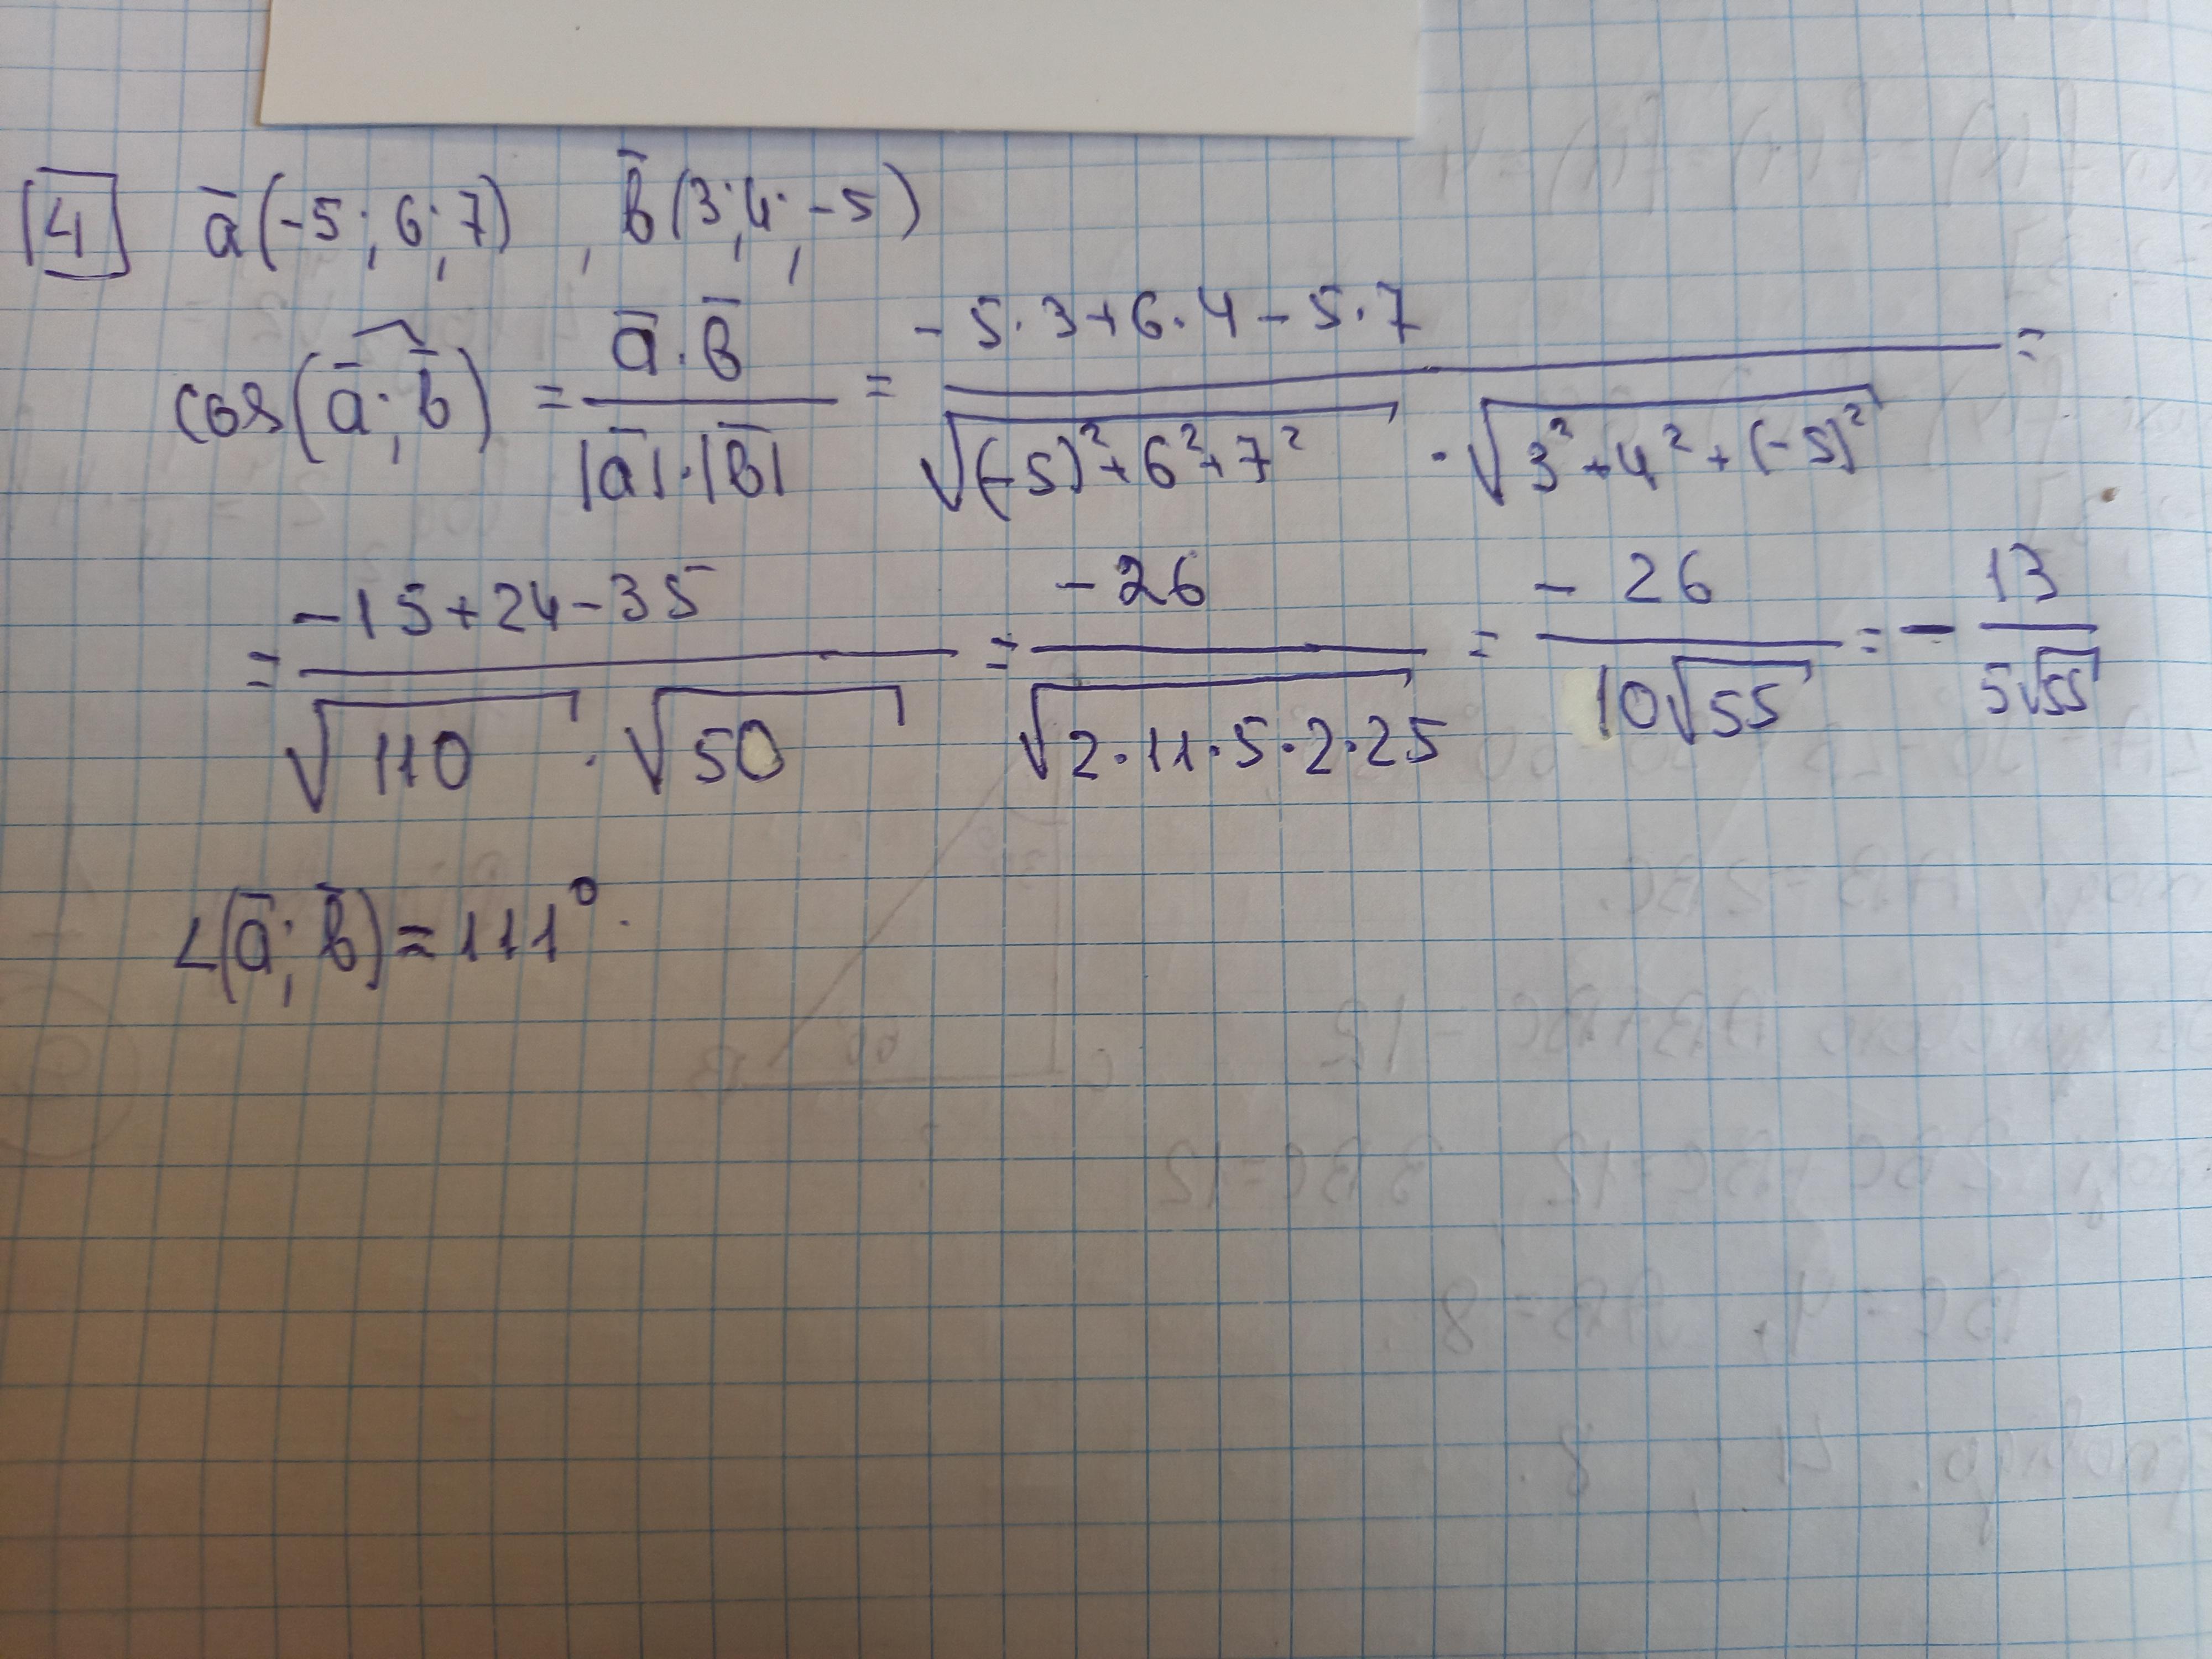 4 a̅(-5; 6; 7) , b̅(3; 4; -5)
cos(a̅; b̅) = a̅·b̅ / |a̅|·|b̅| = -5·3+6·4-5·7 / √(-5)²+6²+7² · √3²+4²+(-5)² =
= -15+24-35 / √110 · √50 = -26 / √2·11·5·2·25 = -26 / 10√55 = - 13 / 5√55
∠(a̅; b̅) ≈ 111°.